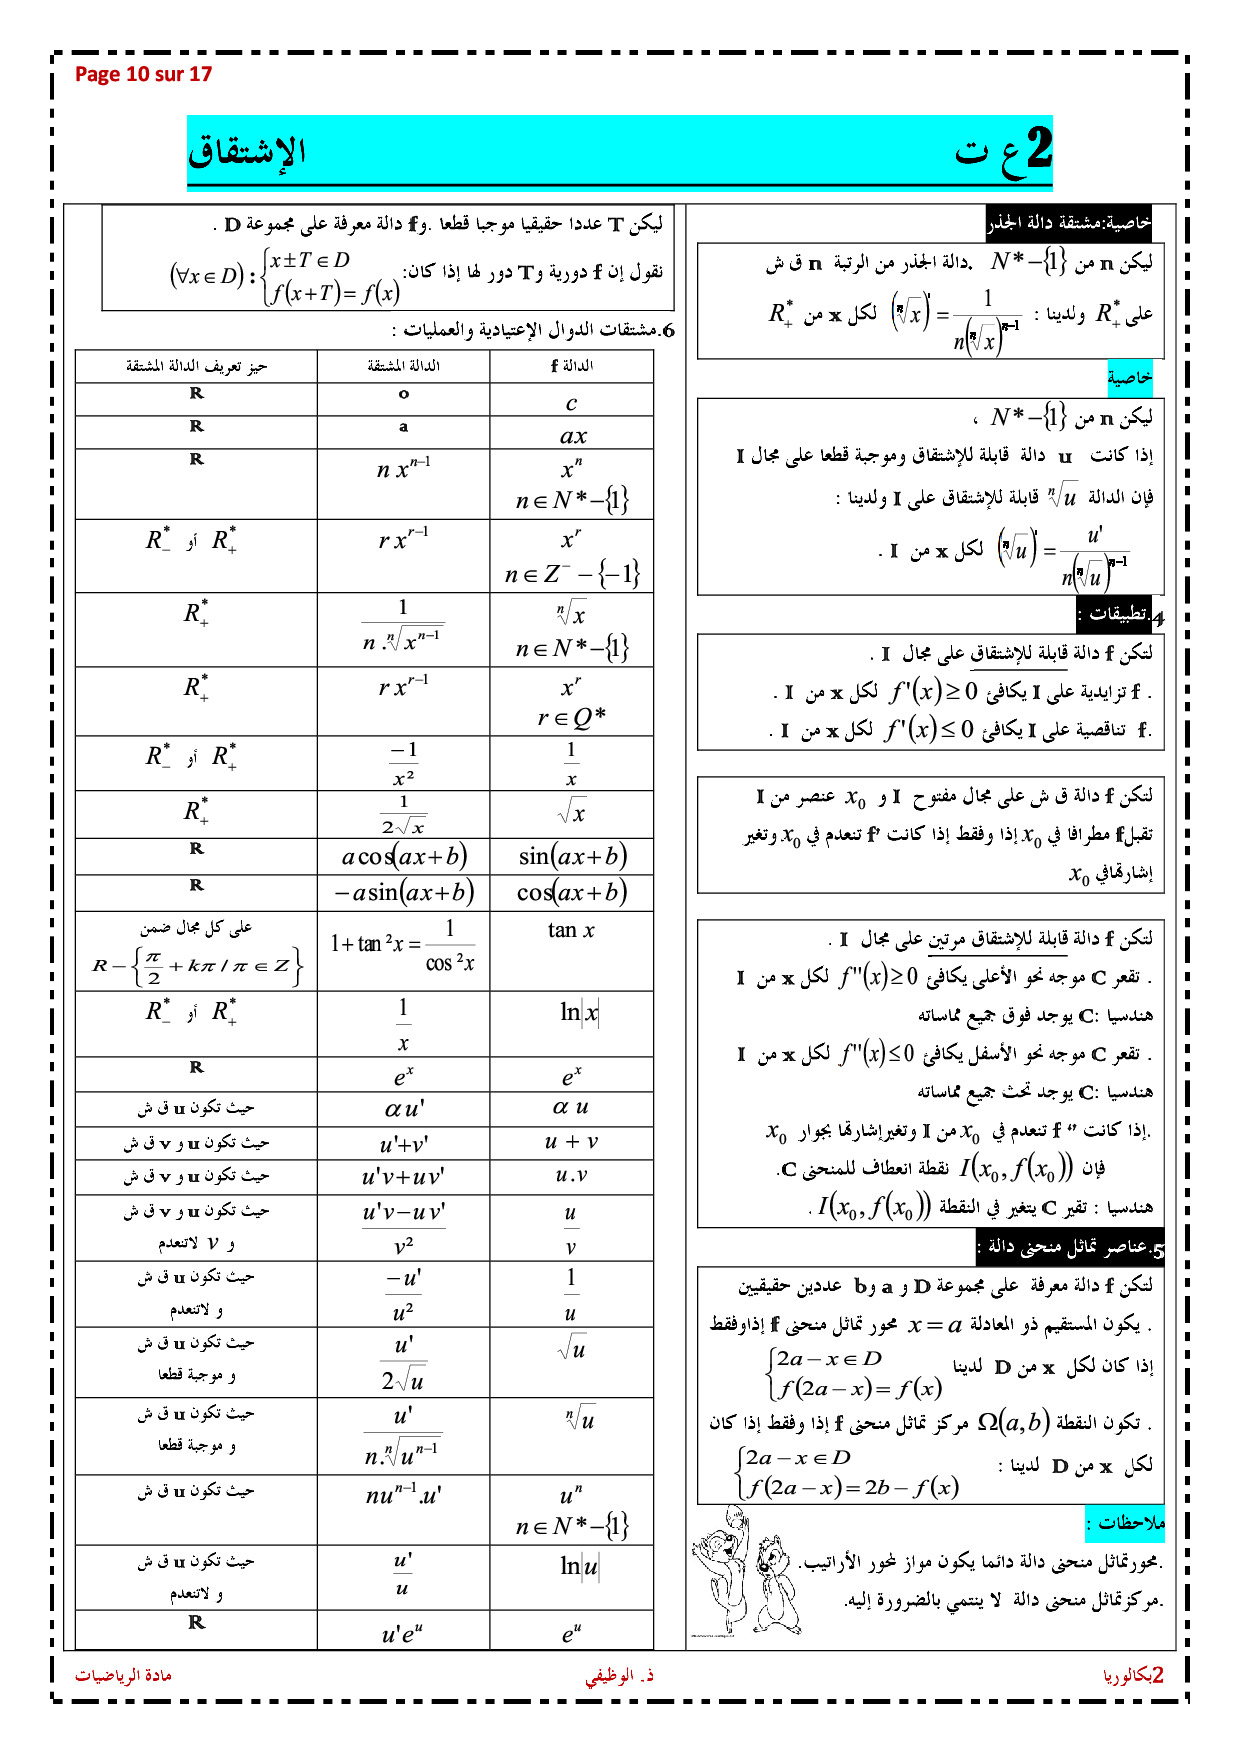 Page 10 sur 17
2ع ت الإشتقاق
خاصية:مشتقة دالة الجذر
ليكن n من N*−{1} .دالة الجذر من الرتبة n ق ش
على R₊* ولدينا : (ⁿ√x)' = 1/(n(ⁿ√x)ⁿ⁻¹) لكل x من R₊*
خاصية
ليكن n من N*−{1} ،
إذا كانت u دالة قابلة للإشتقاق وموجبة قطعا على مجال I
فإن الدالة ⁿ√u قابلة للإشتقاق على I ولدينا :
(ⁿ√u)' = u'/(n(ⁿ√u)ⁿ⁻¹) لكل x من I .
4.تطبيقات :
لتكن f دالة قابلة للإشتقاق على مجال I .
. f تزايدية على I يكافئ f'(x)≥0 لكل x من I .
.f تناقصية على I يكافئ f'(x)≤0 لكل x من I .
لتكن f دالة ق ش على مجال مفتوح I و x₀ عنصر من I
تقبل f مطرافا في x₀ إذا وفقط إذا كانت f' تنعدم في x₀ وتغير
إشارتها في x₀
لتكن f دالة قابلة للإشتقاق مرتين على مجال I .
. تقعر C موجه نحو الأعلى يكافئ f''(x)≥0 لكل x من I
هندسيا :C يوجد فوق جميع مماساته
. تقعر C موجه نحو الأسفل يكافئ f''(x)≤0 لكل x من I
هندسيا :C يوجد تحث جميع مماساته
.إذا كانت f '' تنعدم في x₀ من I وتغير إشارتها بجوار x₀
فإن I(x₀, f(x₀)) نقطة انعطاف للمنحنى C.
هندسيا : تقير C يتغير في النقطة I(x₀, f(x₀)) .
5.عناصر تماثل منحنى دالة :
لتكن f دالة معرفة على مجموعة D و a و b عددين حقيقيين
. يكون المستقيم ذو المعادلة x = a محور تماثل منحنى f إذاوفقط
إذا كان لكل x من D لدينا {2a − x ∈ D
f(2a − x) = f(x)
. تكون النقطة Ω(a,b) مركز تماثل منحنى f إذا وفقط إذا كان
لكل x من D لدينا : {2a − x ∈ D
f(2a − x) = 2b − f(x)
ملاحظات :
.محورتماثل منحنى دالة دائما يكون مواز لمحور الأراتيب.
.مركزتماثل منحنى دالة لا ينتمي بالضرورة إليه.
ليكن T عددا حقيقيا موجبا قطعا .و f دالة معرفة على مجموعة D .
نقول إن f دورية و T دور لها إذا كان: (∀x ∈ D) : {x ± T ∈ D
f(x+T) = f(x)
6.مشتقات الدوال الإعتيادية والعمليات :
الدالة f الدالة المشتقة حيز تعريف الدالة المشتقة
c o R
ax a R
xⁿ n xⁿ⁻¹ R
n ∈ N*−{1}
xʳ r xʳ⁻¹ R₊* أو R₋*
n ∈ Z⁻ − {−1}
ⁿ√x 1/(n.ⁿ√xⁿ⁻¹) R₊*
n ∈ N*−{1}
xʳ r xʳ⁻¹ R₊*
r ∈ Q*
1/x −1/x² R₊* أو R₋*
√x 1/(2√x) R₊*
sin(ax+b) a cos(ax+b) R
cos(ax+b) −a sin(ax+b) R
tan x 1+tan²x = 1/cos²x على كل مجال ضمن
R − {π/2 + kπ / π ∈ Z}
ln|x| 1/x R₊* أو R₋*
eˣ eˣ R
α u α u' حيث تكون u ق ش
u + v u'+v' حيث تكون u و v ق ش
u.v u'v+uv' حيث تكون u و v ق ش
u/v (u'v−uv')/v² حيث تكون u و v ق ش
و v لاتنعدم
1/u −u'/u² حيث تكون u ق ش
و لاتنعدم
√u u'/(2√u) حيث تكون u ق ش
و موجبة قطعا
ⁿ√u u'/(n.ⁿ√uⁿ⁻¹) حيث تكون u ق ش
و موجبة قطعا
uⁿ nuⁿ⁻¹.u' حيث تكون u ق ش
n ∈ N*−{1}
ln|u| u'/u حيث تكون u ق ش
و لاتنعدم
eᵘ u'eᵘ R
2بكالوريا ذ. الوظيفي مادة الرياضيات